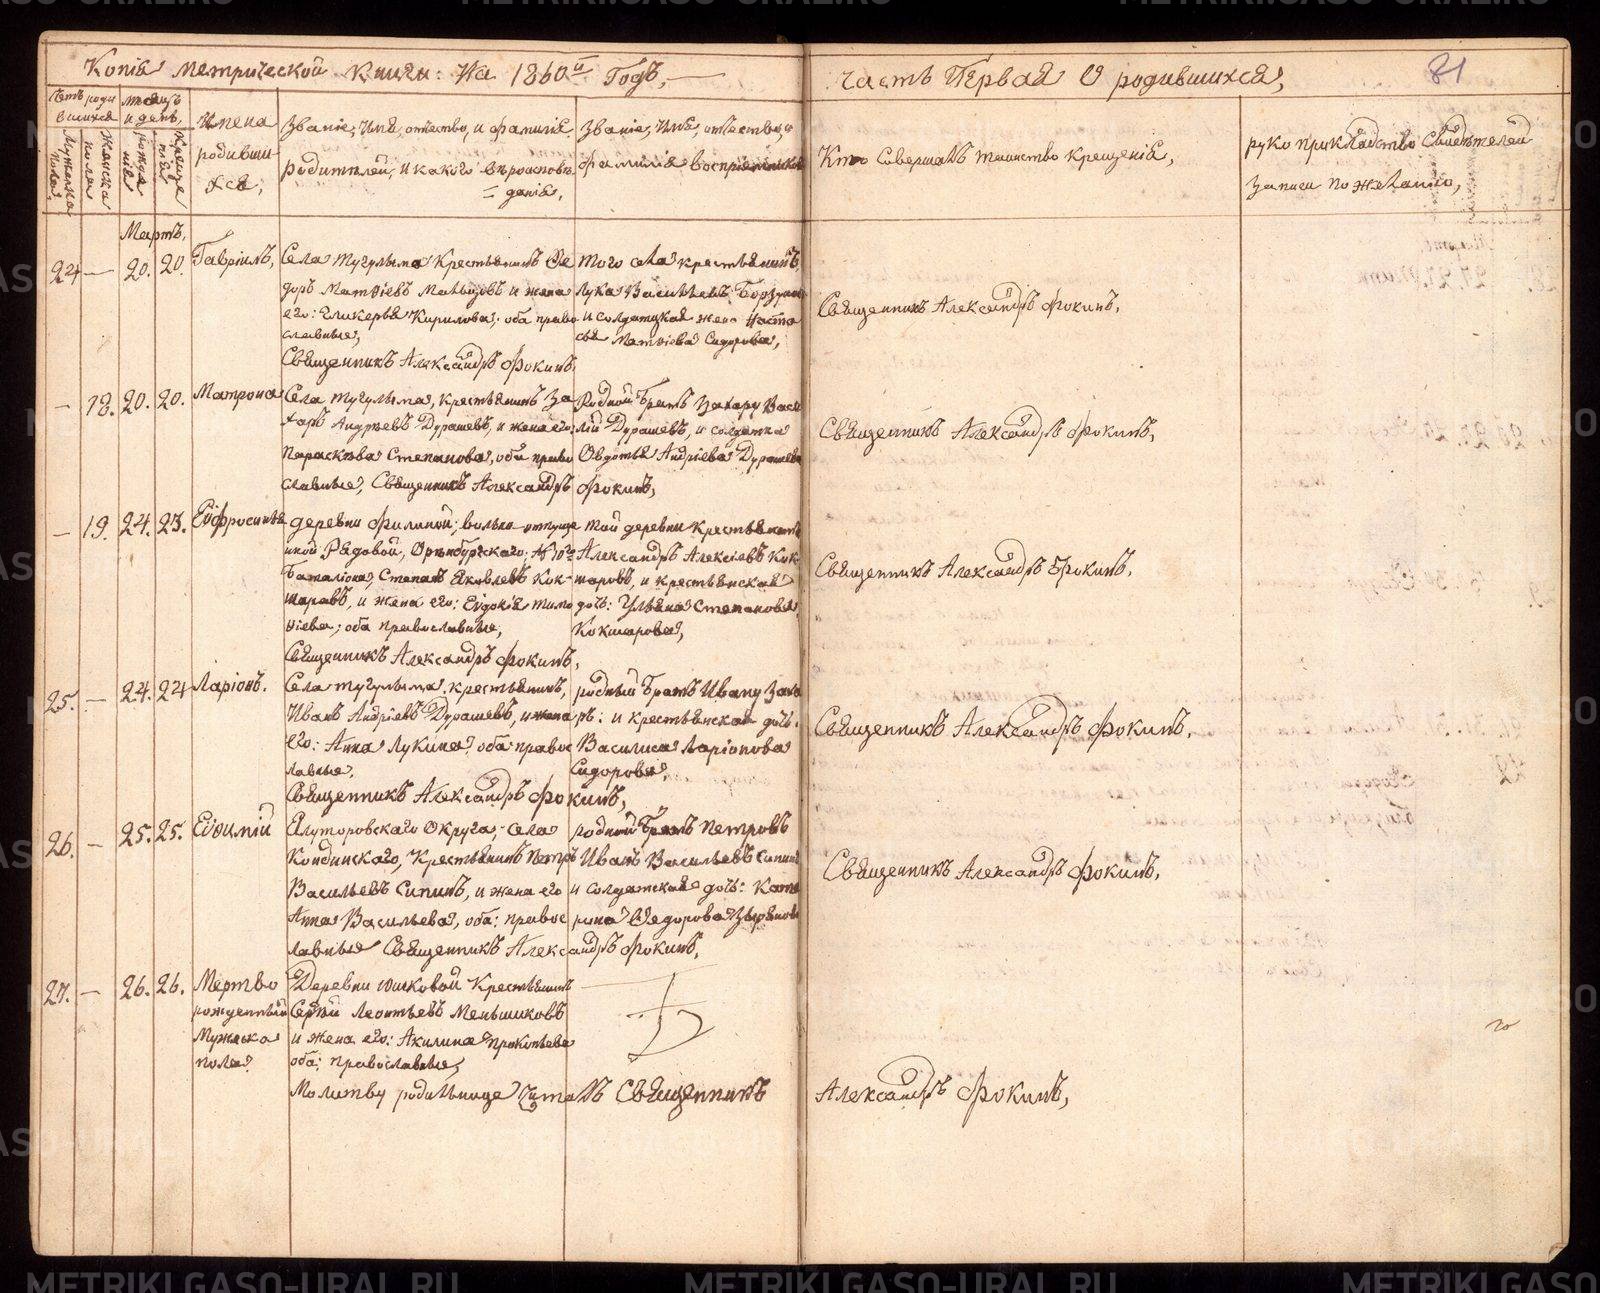 Копія метрической книги: На 1860й Годъ,
часть Первая О родившихся,
81
Счетъ роди
вшихся
Мужеска
пола
Женска
пола
мѣсяцъ
и день,
рожде
нія
Креще
нія
Имена
родивши
хся,
Званіе, Имя, отчество, и фамилія
родителей, и какого вѣроисповѣ
= данія,
Званіе, Имя, отчество, и
фамилія воспріемниковъ
Кто совершалъ таинство крещенія,
руко прикладство Свидѣтелей
записи по желанію,
Мартъ,
24 — 20. 20. Гавріилъ,
Села Тугулыма Крестьянинъ Ѳе
доръ Матвіевъ Мальцовъ и жена
его: Гликерья Кирилова, оба право
славные,
Священникъ Александръ Фокинъ,
того села крестьянинъ
Лука Васильевъ
и солдатская жена Наста
сья Матвіева Сидорова,
Священникъ Александръ Фокинъ,
— 18. 20. 20. Матрона
Села Тугулыма, крестьянинъ За
харъ Андріевъ Дурашевъ, и жена его:
Параскѣва Степанова, оба право
славные, Священникъ Александръ Фокинъ,
Родной Братъ Захару Васи
лій Дурашевъ, и солдатка
Овдотья Андріева Дурашева
Священникъ Александръ Фокинъ,
— 19. 24. 23. Евфросинья
деревни Филиной; вольно отпуще
нной Рядовой, Оренбургскаго: № 10го
Баталіона, Степанъ Яковлевъ Кок-
шаровъ, и жена его: Евдокія Тимо
ѳіева; оба православные,
Священникъ Александръ Фокинъ,
той деревни Крестьянинъ
Александръ Алексіевъ Кок-
шаровъ, и крестьянская
дочь: Ульяна Степанова
Кокшарова,
Священникъ Александръ Фокинъ,
25. — 24. 24 Ларіонъ.
Села Тугулыма, крестьянинъ,
Иванъ Андріевъ Дурашевъ, и жена
его: Анна Лукина, оба: правос
лавные,
Священникъ Александръ Фокинъ,
родный Братъ Ивану Заха
ръ: и крестьянская дочь:
Василиса Ларіонова
Сидорова,
Священникъ Александръ Фокинъ,
26. — 25. 25. Евѳимій
Ялуторовскаго Округа, села
Кондинскаго, Крестьянинъ Петръ
Васильевъ Сипинъ, и жена его
Анна Васильева, оба: правос
лавные Священникъ Александръ Фокинъ,
родной Братъ Петровъ
Иванъ Васильевъ Сипинъ
и Солдатская дочь: Кате
рина Ѳедорова Зырянова
Священникъ Александръ Фокинъ,
27. — 26. 26. Мертво
рожденный
Мужеска
пола
Деревни Юшковой Крестьянинъ
Сергій Леонтьевъ Меньшиковъ
и жена его: Акилина Прокопьева
оба: православные,
Молитву родильнице Читалъ Священникъ Александръ Фокинъ,
METRIKI.GASO-URAL.RU